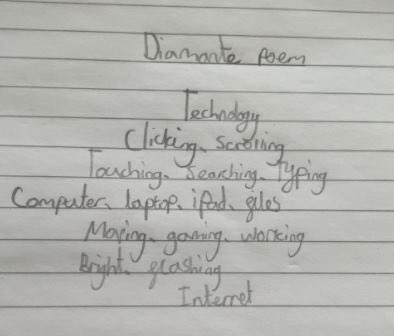 Diamante poem
Technology
Clicking, scrolling
Touching, searching, typing
Computer, laptop, iPad, files
Moving, gaming, working
Bright, flashing
Internet